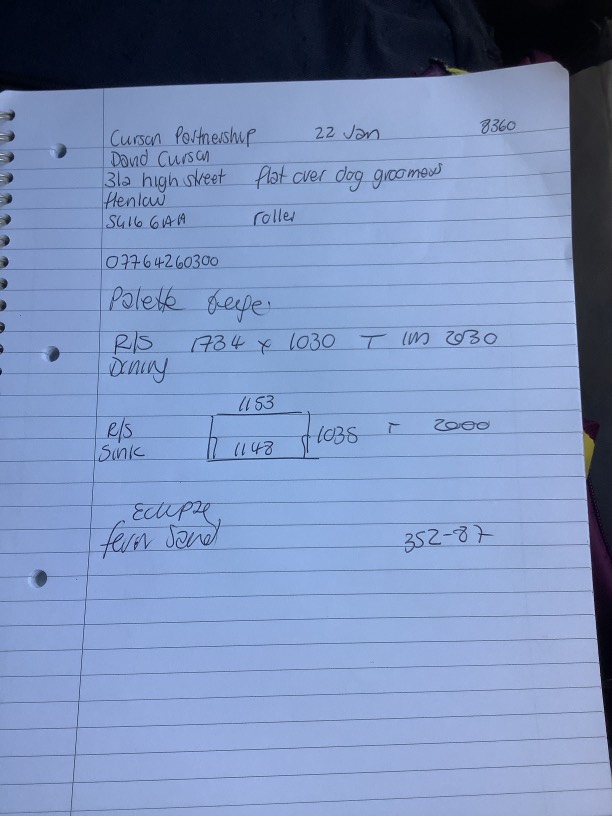 Curson Partnership 22 Jan 8360
David Curson
31a high street flat over dog groomers
Henlow
SG16 6AA roller
07764260300
Palette
R/S 1734 x 1030 T 1m 2030
Dining
1153
R/S 1148 1035 T 2000
Sink
Eclipse
Sand 352-87